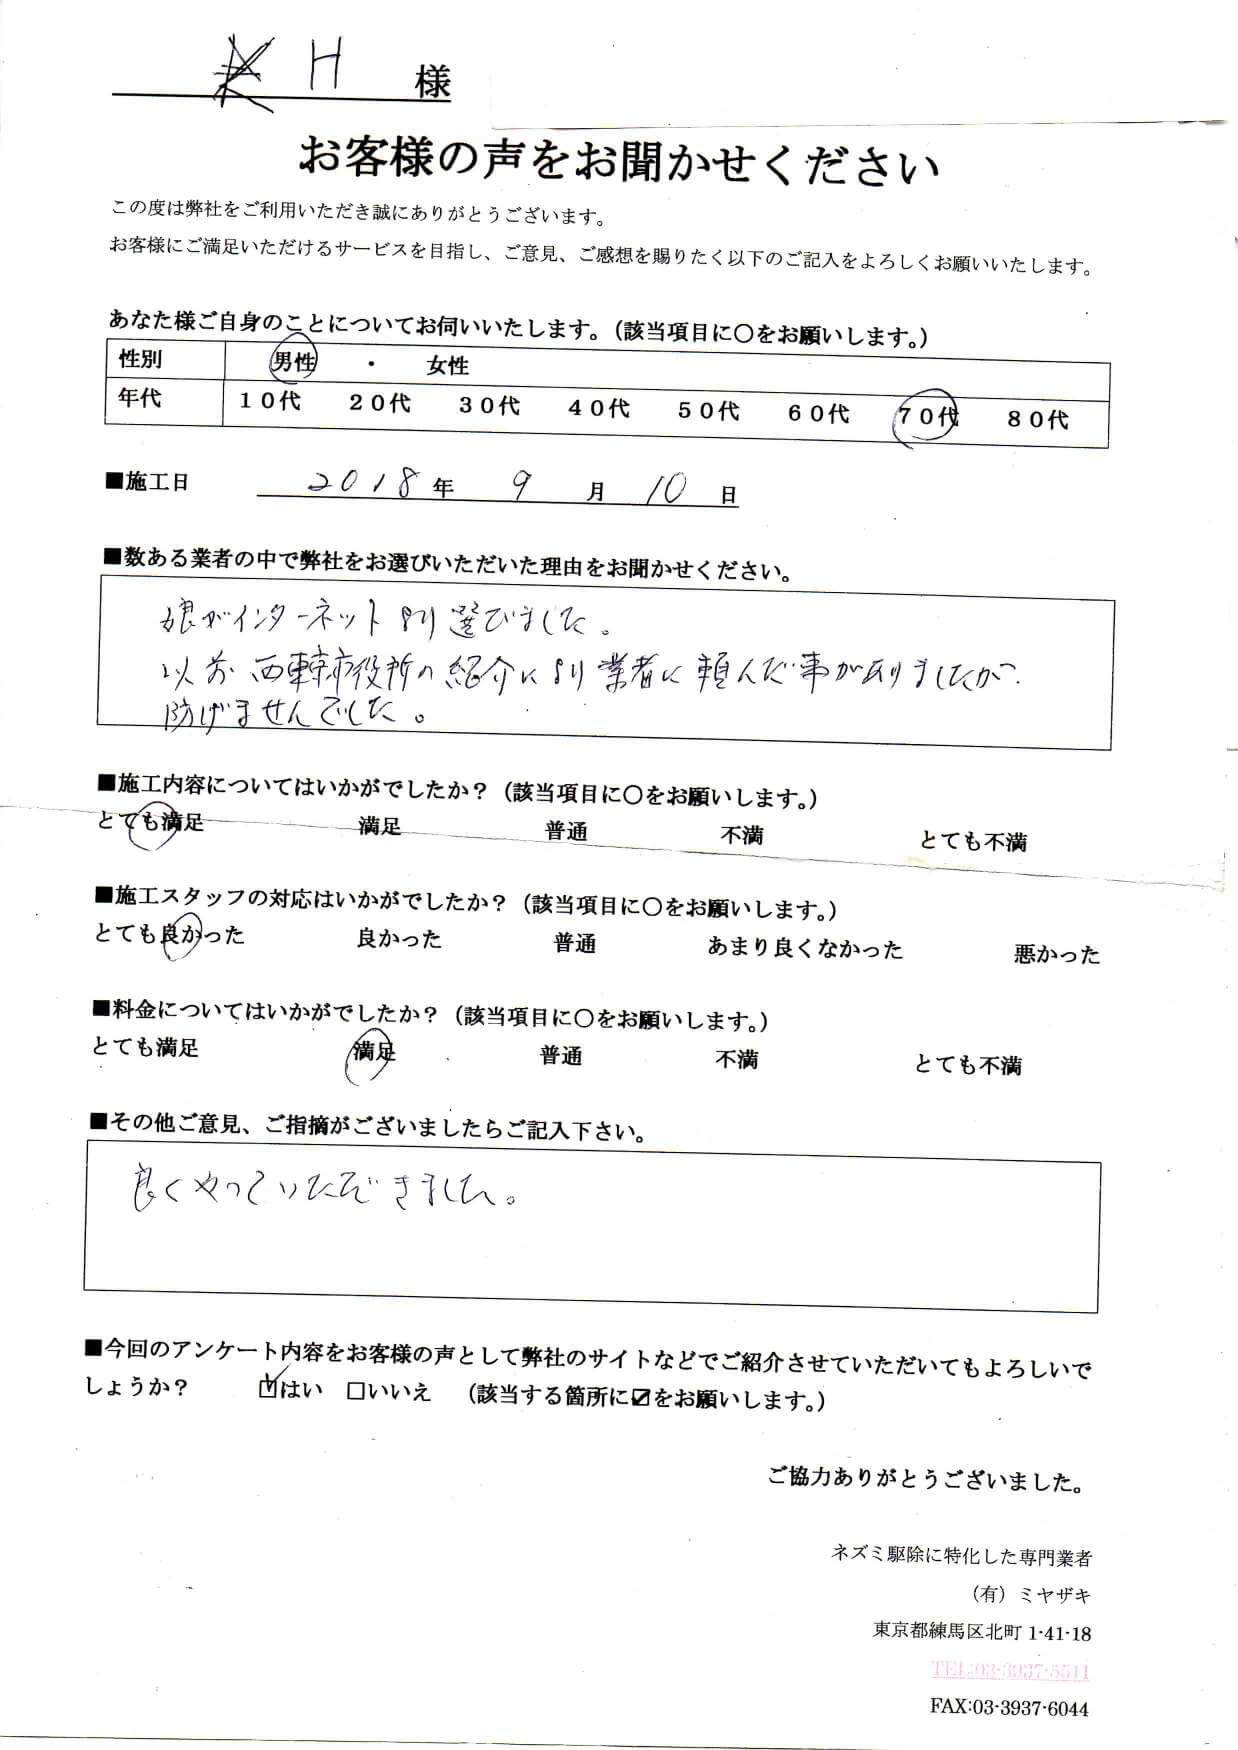 H 様
お客様の声をお聞かせください
この度は弊社をご利用いただき誠にありがとうございます。
お客様にご満足いただけるサービスを目指し、ご意見、ご感想を賜りたく以下のご記入をよろしくお願いいたします。
あなた様ご自身のことについてお伺いいたします。（該当項目に〇をお願いします。）
性別 男性 ・ 女性
年代 １０代 ２０代 ３０代 ４０代 ５０代 ６０代 ７０代 ８０代
■施工日 2018 年 9 月 10 日
■数ある業者の中で弊社をお選びいただいた理由をお聞かせください。
娘がインターネットより選びました。
以前 西東京市役所の紹介により業者に頼んだ事がありましたが
防げませんでした。
■施工内容についてはいかがでしたか？（該当項目に〇をお願いします。）
とても満足 満足 普通 不満 とても不満
■施工スタッフの対応はいかがでしたか？（該当項目に〇をお願いします。）
とても良かった 良かった 普通 あまり良くなかった 悪かった
■料金についてはいかがでしたか？（該当項目に〇をお願いします。）
とても満足 満足 普通 不満 とても不満
■その他ご意見、ご指摘がございましたらご記入下さい。
良くやっていただきました。
■今回のアンケート内容をお客様の声として弊社のサイトなどでご紹介させていただいてもよろしいで
しょうか？ ☑はい □いいえ （該当する箇所に☑をお願いします。）
ご協力ありがとうございました。
ネズミ駆除に特化した専門業者
（有）ミヤザキ
東京都練馬区北町 1-41-18
TEL:03-3937-5511
FAX:03-3937-6044